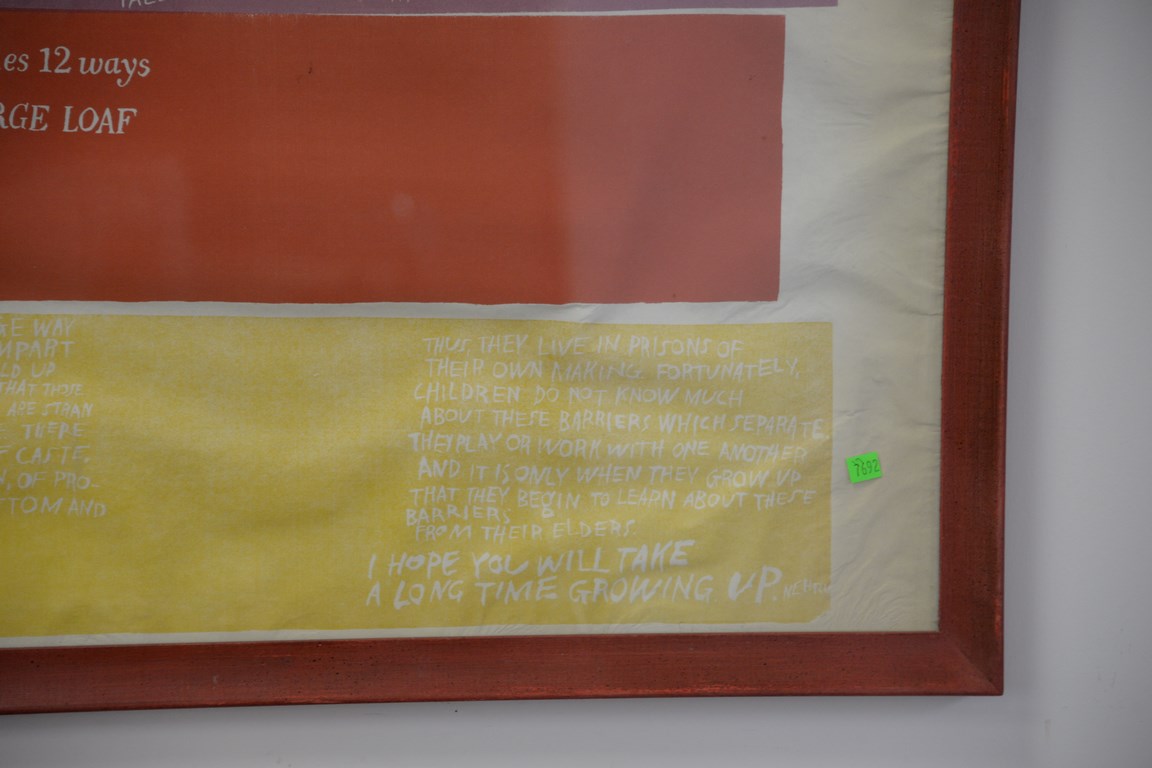 es 12 ways
RGE LOAF
GE WAY
MPART
LD UP
THAT THOSE
ARE STRAN
THERE
F CASTE,
N, OF PRO-
TTOM AND
THUS, THEY LIVE IN PRISONS OF
THEIR OWN MAKING. FORTUNATELY,
CHILDREN DO NOT KNOW MUCH
ABOUT THESE BARRIERS WHICH SEPARATE.
THEY PLAY OR WORK WITH ONE ANOTHER
AND IT IS ONLY WHEN THEY GROW UP
THAT THEY BEGIN TO LEARN ABOUT THESE
BARRIERS
FROM THEIR ELDERS.
I HOPE YOU WILL TAKE
A LONG TIME GROWING UP. NEHRU
7692